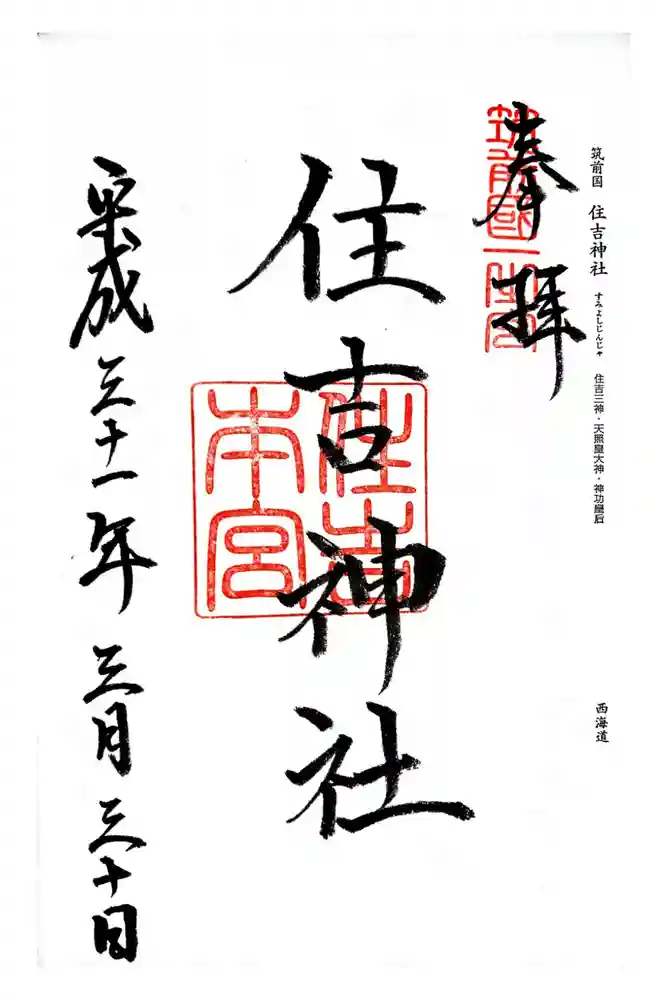 筑前国 住吉神社 すみよしじんじゃ 住吉三神・天照皇大神・神功皇后
西海道
奉拝
筑前國一之宮
住吉神社
住吉
本宮
平成三十一年三月三十日